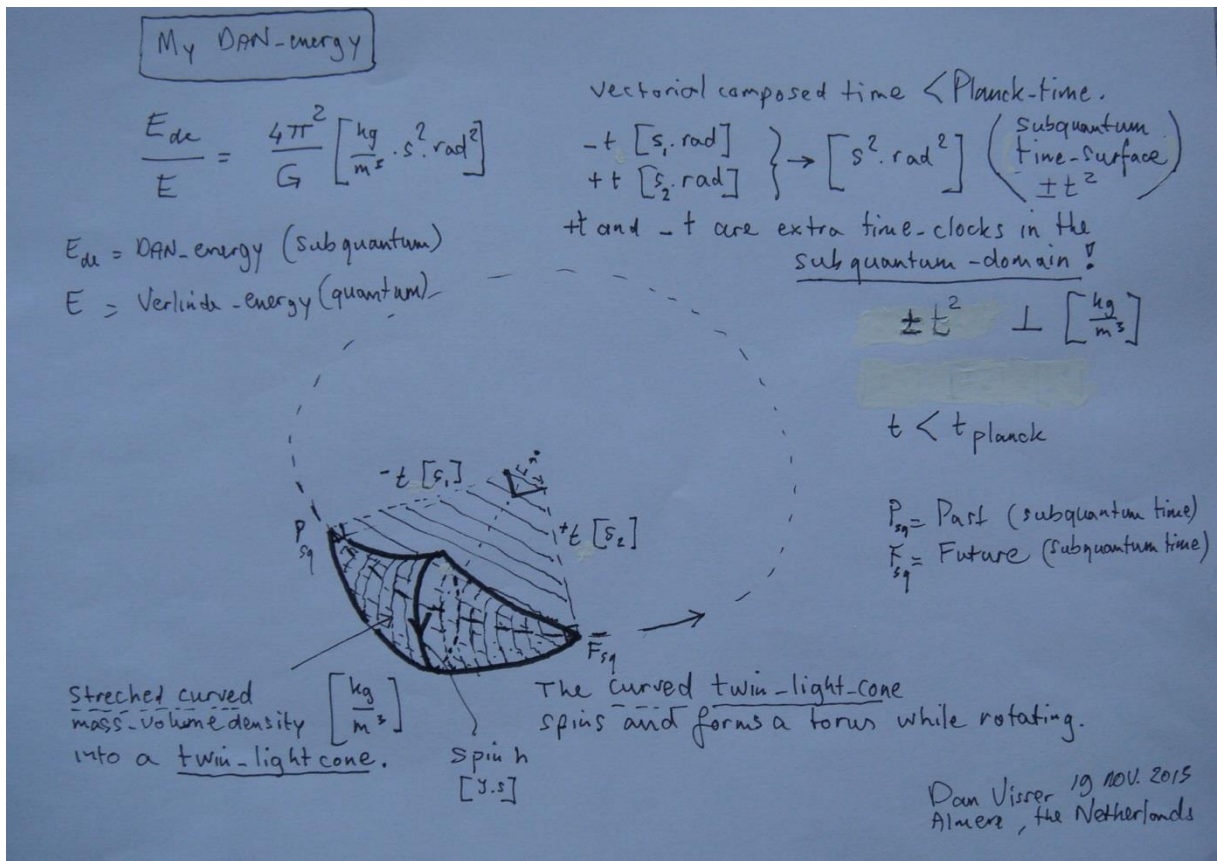 My DAN-energy
E_de / E = 4π² / G [kg/m³ · s² · rad²]
E_de = DAN-energy (subquantum)
E = Verlinde-energy (quantum)
vectorial composed time < Planck-time.
-t [s₁. rad]
+t [s₂. rad] } → [s². rad²] (subquantum time-surface ±t²)
+t and -t are extra time-clocks in the
subquantum-domain!
±t² ⊥ [kg/m³]
t < t planck
P_sq = Past (subquantum time)
F_sq = Future (subquantum time)
-t [s₁]
+t [s₂]
P_sq
F_sq
Streched curved
mass-volume density [kg/m³]
into a twin-light cone.
Spin h
[J.s]
The curved twin-light-cone
spins and forms a torus while rotating.
Dan Visser 19 nov. 2015
Almere, the Netherlands